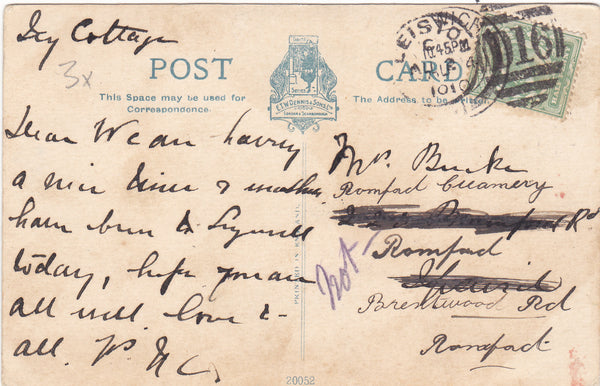 Ivy Cottage
3x
POST CARD
This Space may be used for
Correspondence.
The Address to be
SERIES
E.T.W. DENNIS & SONS LTD
LONDON & SCARBOROUGH
45PM
16
Dear We are having
a nice time & mother
have been to
today, hope you are
all well love to
all.
PRINTED IN ENGLAND
Mr. Burke
Romford Creamery
Rd
Romford
Brentwood Rd
Romford
not
20052